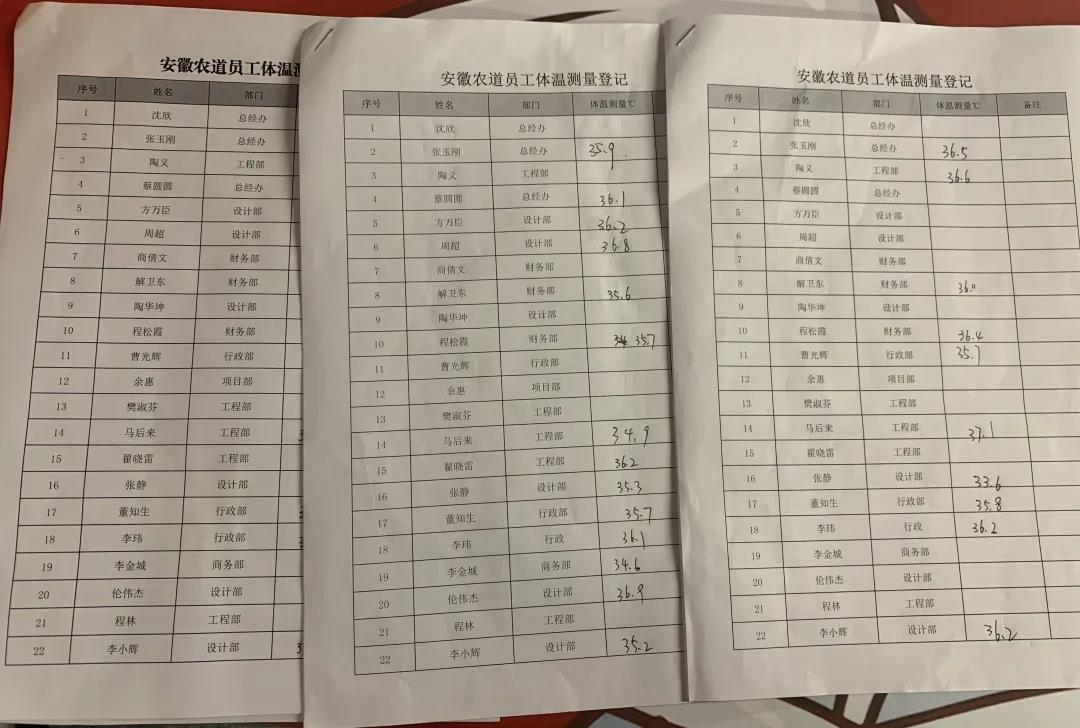 安徽农道员工体温测
序号 姓名 部门
1 沈欣 总经办
2 张玉刚 总经办
3 陶义 工程部
4 蔡圆圆 总经办
5 方万臣 设计部
6 周超 设计部
7 商倩文 财务部
8 解卫东 财务部
9 陶华坤 设计部
10 程松霞 财务部
11 曹光辉 行政部
12 余惠 项目部
13 樊淑芬 工程部
14 马后来 工程部
15 翟晓雷 工程部
16 张静 设计部
17 董知生 行政部
18 李玮 行政部
19 李金城 商务部
20 伦伟杰 设计部
21 程林 工程部
22 李小辉 设计部
安徽农道员工体温测量登记
序号 姓名 部门 体温测量℃
1 沈欣 总经办
2 张玉刚 总经办 35.9
3 陶义 工程部
4 蔡圆圆 总经办 36.1
5 方万臣 设计部 36.2
6 周超 设计部 36.8
7 商倩文 财务部
8 解卫东 财务部 35.6
9 陶华坤 设计部
10 程松霞 财务部 35.7
11 曹光辉 行政部
12 余惠 项目部
13 樊淑芬 工程部
14 马后来 工程部 34.9
15 翟晓雷 工程部 36.2
16 张静 设计部 35.3
17 董知生 行政部 35.7
18 李玮 行政 36.1
19 李金城 商务部 34.6
20 伦伟杰 设计部 36.9
21 程林 工程部
22 李小辉 设计部 35.2
安徽农道员工体温测量登记
序号 姓名 部门 体温测量℃ 备注
1 沈欣 总经办
2 张玉刚 总经办 36.5
3 陶义 工程部 36.6
4 蔡圆圆 总经办
5 方万臣 设计部
6 周超 设计部
7 商倩文 财务部
8 解卫东 财务部 36.0
9 陶华坤 设计部
10 程松霞 财务部 36.4
11 曹光辉 行政部 35.7
12 余惠 项目部
13 樊淑芬 工程部
14 马后来 工程部 37.1
15 翟晓雷 工程部
16 张静 设计部 33.6
17 董知生 行政部 35.8
18 李玮 行政 36.2
19 李金城 商务部
20 伦伟杰 设计部
21 程林 工程部
22 李小辉 设计部 36.2